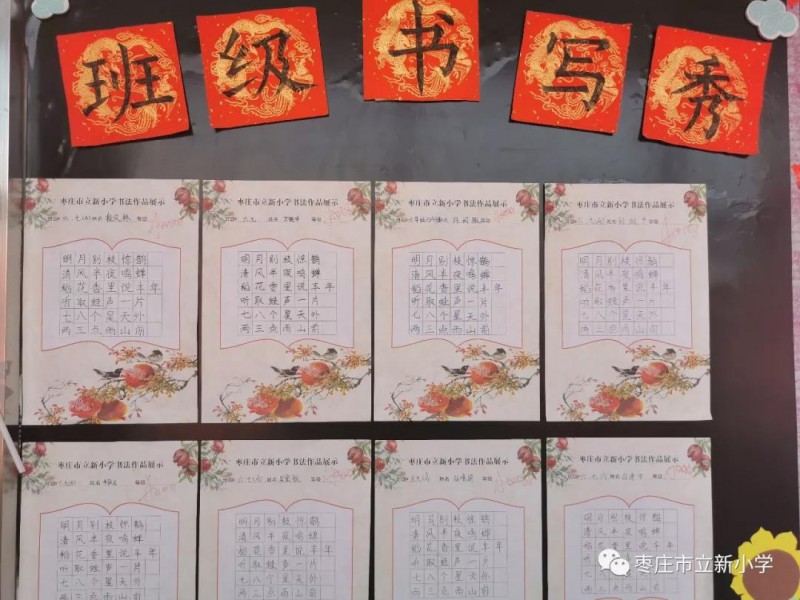 班级书写秀
枣庄市立新小学书法作品展示
明月别枝惊鹊
清风半夜鸣蝉
稻花香里说丰年
听取蛙声一片
七八个星天外
两三点雨山前
枣庄市立新小学书法作品展示
明月别枝惊鹊
清风半夜鸣蝉
稻花香里说丰年
听取蛙声一片
七八个星天外
两三点雨山前
枣庄市立新小学书法作品展示
明月别枝惊鹊
清风半夜鸣蝉
稻花香里说丰年
听取蛙声一片
七八个星天外
两三点雨山前
枣庄市立新小学书法作品展示
明月别枝惊鹊
清风半夜鸣蝉
稻花香里说丰年
听取蛙声一片
七八个星天外
两三点雨山前
枣庄市立新小学书法作品展示
明月别枝惊鹊
清风半夜鸣蝉
稻花香里说丰年
听取蛙声一片
七八个星天外
枣庄市立新小学书法作品展示
明月别枝惊鹊
清风半夜鸣蝉
稻花香里说丰年
听取蛙声一片
七八个星天外
枣庄市立新小学书法作品展示
明月别枝惊鹊
清风半夜鸣蝉
稻花香里说丰年
听取蛙声一片
七八个星天外
枣庄市立新小学书法作品展示
明月别枝惊鹊
清风半夜鸣蝉
稻花香里说丰年
听取蛙声一片
七八个星天外
枣庄市立新小学